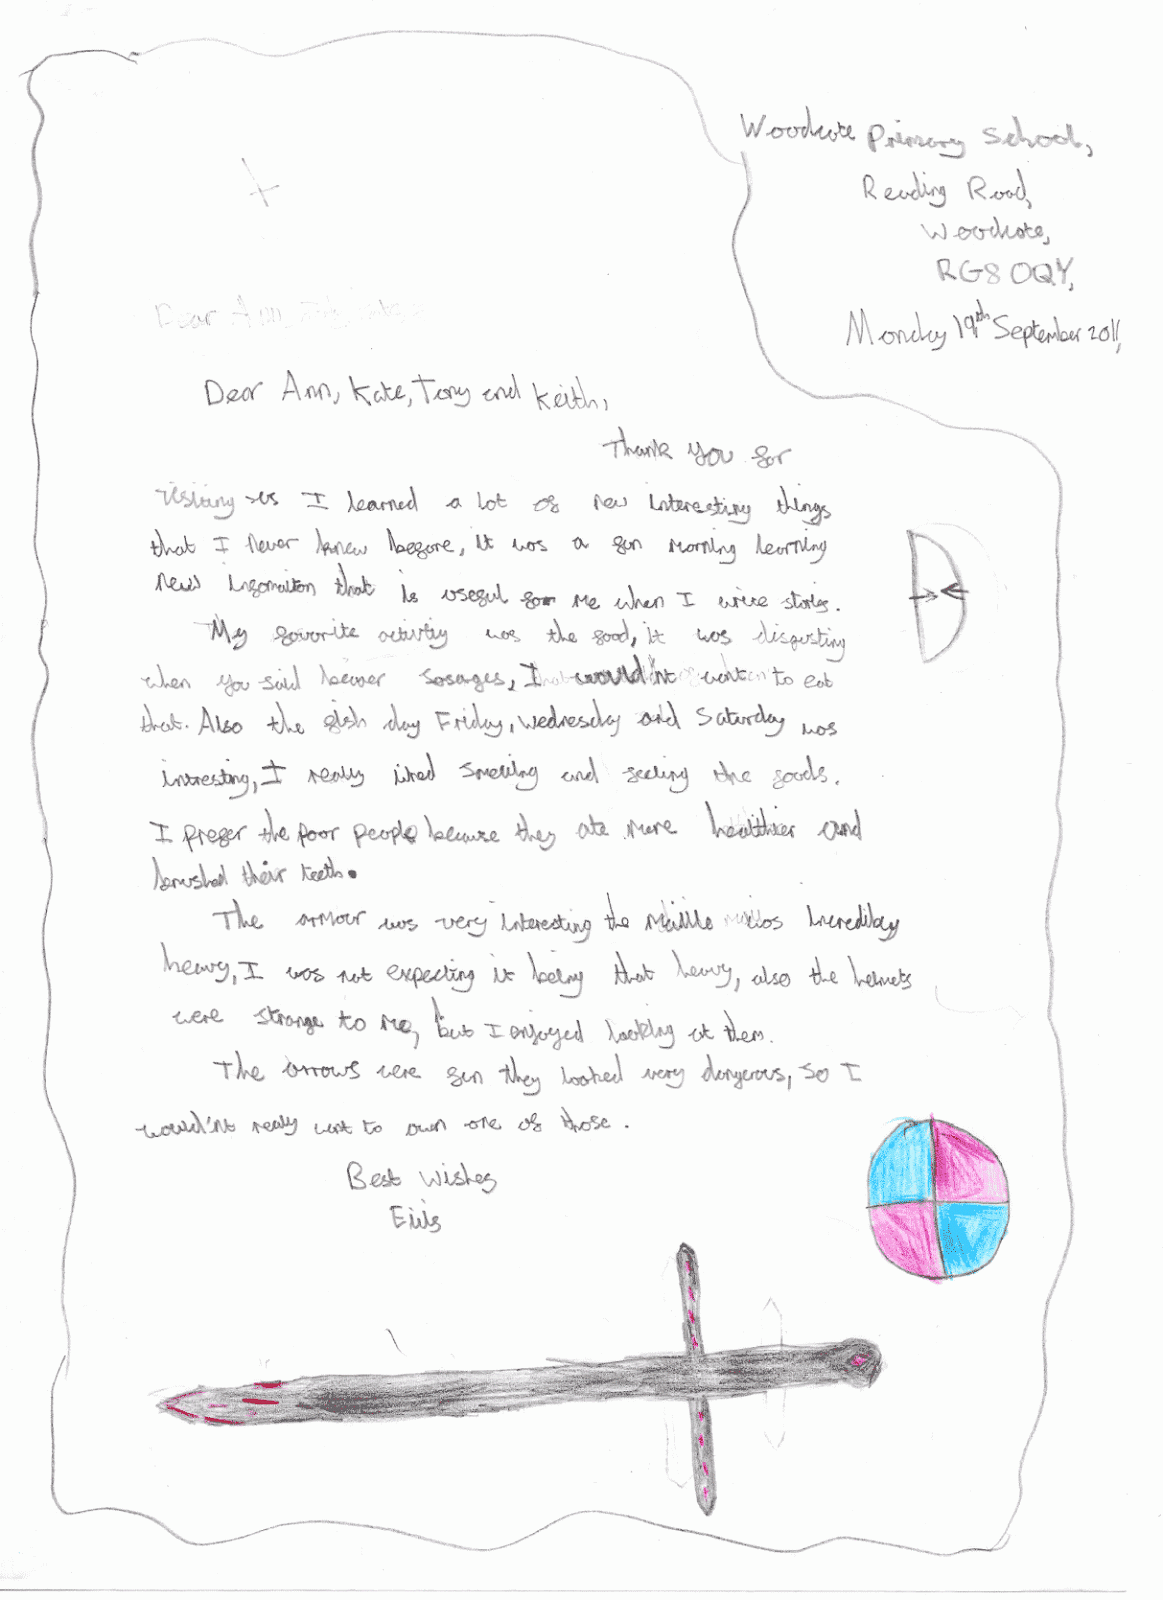 Woodcote Primary School,
Reading Road,
Woodcote,
RG8 0QY,
Monday 19th September 2011,
Dear Ann,
Dear Ann, Kate, Tony and Keith,
Thank you for
visiting us I learned a lot of new interesting things
that I never knew before, it was a fun morning learning
new infomaiton that is useful for me when I write stories.
My favorite activtiy was the food, it was disgusting
when you said beaver sosarges, I wouldn't want to eat
that. Also the fish day Friday, Wednesday and Saturday was
intresting, I really liked smelling and feeling the foods.
I prefer the poor people because they ate more healthier and
brushed their teeth.
The armour was very interesting the Maille was incredibley
heavy, I was not expecting it being that heavy, also the helmets
were strange to me, but I enjoyed looking at them.
The arrows were fun they looked very dangerous, so I
would'nt realy want to own one of those.
Best Wishes